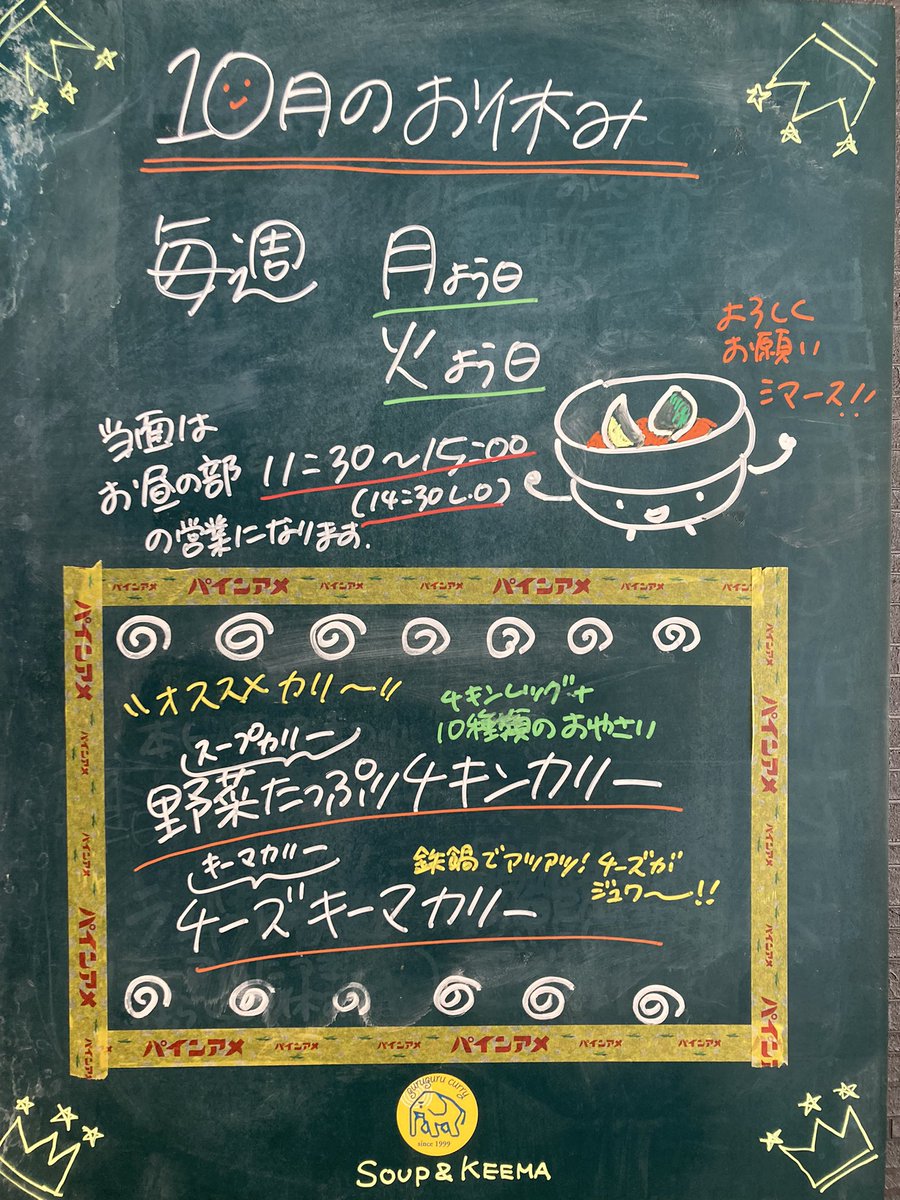 10月のお休み
毎週 月よう日
火よう日
よろしく
お願い
シマース!!
当面は
お昼の部 11:30〜15:00
(14:30 L.O)
の営業になります.
パインアメ パインアメ パインアメ パインアメ パインアメ パインアメ パインアメ
オススメカリー
チキンレッグ+
10種類のおやさい
スープカリー
野菜たっぷりチキンカリー
キーマカリー
鉄鍋でアツアツ!チーズが
ジュワ〜!!
チーズキーマカリー
パインアメ パインアメ パインアメ パインアメ パインアメ パインアメ パインアメ
guruguru curry
since 1999
SOUP & KEEMA